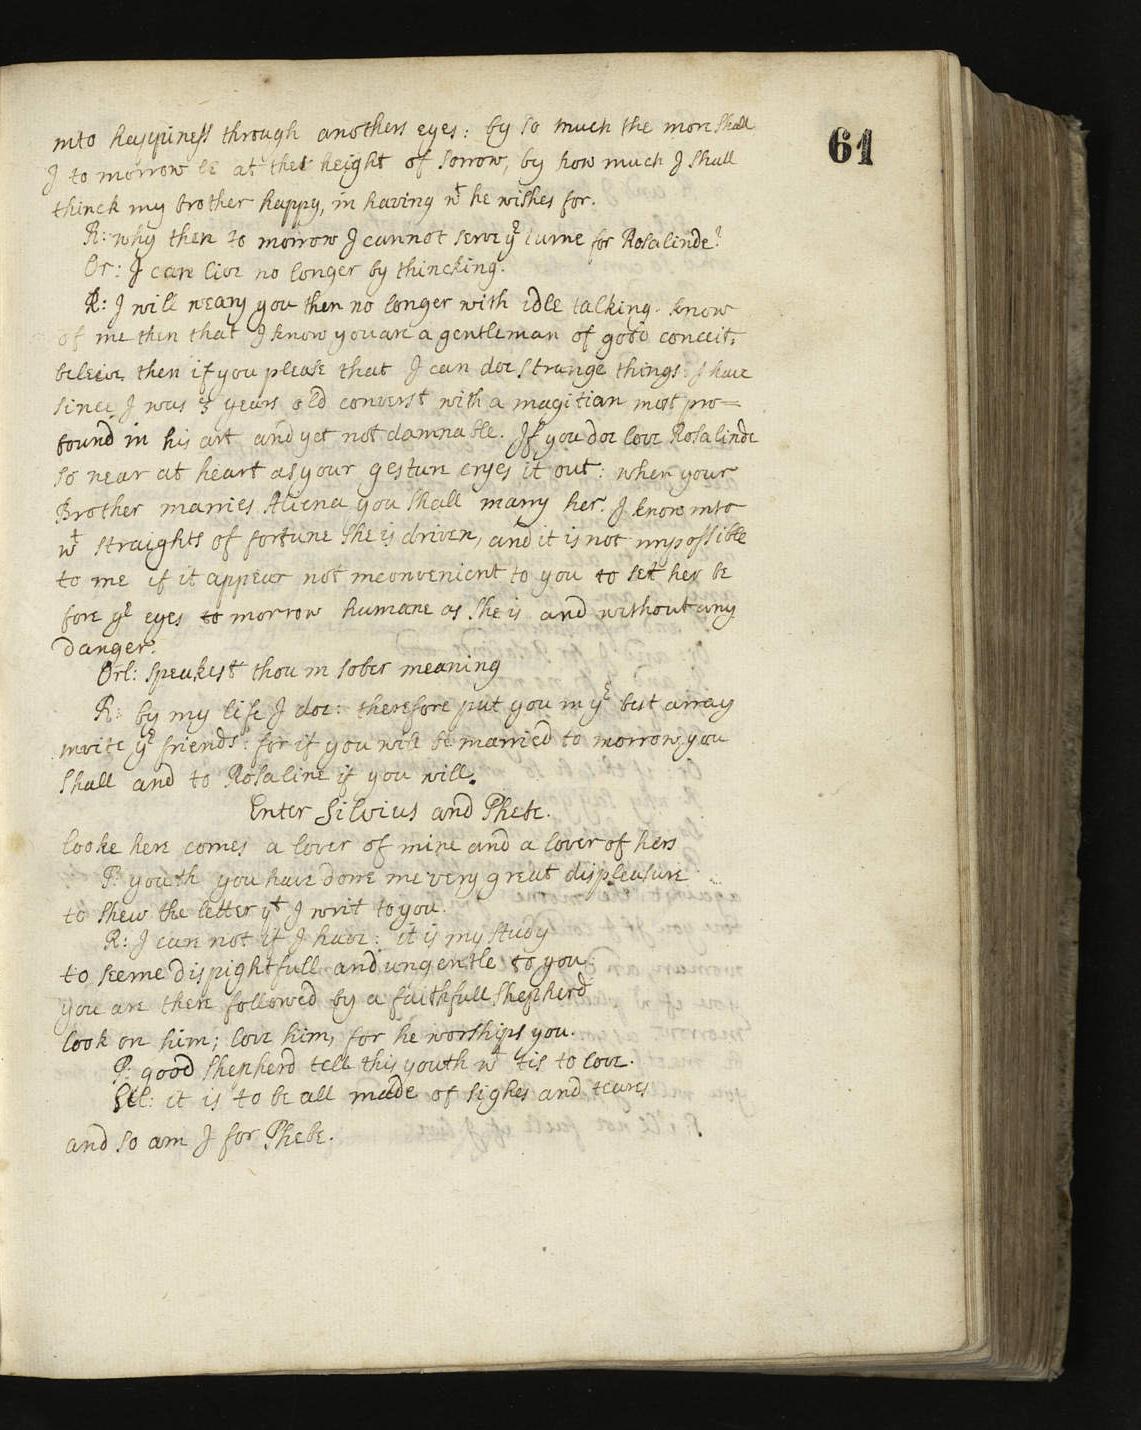 61
into happiness through anothers eyes: by so much the more shall
I to morrow be at the height of sorrow, by how much I shall
thinck my brother happy, in having wt he wishes for.
R: why then to morrow I cannot serve yr turne for Rosalinde?
Or: I can live no longer by thincking.
R: I will weary you then no longer with idle talking. know
of me then that I know you are a gentleman of good conceit,
beleive then if you please that I can doe strange things: I have
since I was 3 years old converst with a magitian most pro=
found in his art and yet not damnable. If you doe love Rosalinde
so near at heart as your gesture cryes it out: when your
Brother marries Aliena you shall marry her. I know into
wt straights of fortune she is driven, and it is not impossible
to me if it appear not inconvenient to you to set her be
fore yr eyes to morrow humane as she is and without any
danger.
Orl: speakest thou in sober meaning
R: by my life I doe: therefore put you in yr best array
invite yr friends: for if you will be married to morrow you
shall and to Rosaline if you will.
Enter Silvius and Phebe.
looke here comes a lover of mine and a lover of hers
P: youth you have done me very great displeasure
to shew the letter yt I writ to you.
R: I care not if I have: it is my study
to seeme dispightfull and ungentle to you:
you are there followed by a faithfull shepherd
look on him; love him, for he worships you.
P: good shepherd tell this youth wt tis to love.
Sil: it is to be all made of sighes and teares
and so am I for Phebe.